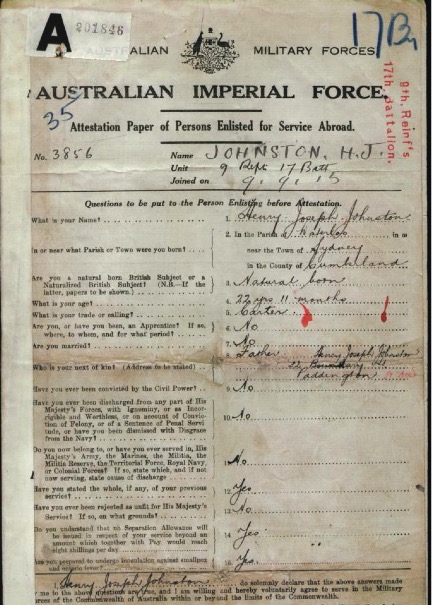 A
201846
17 Bn
AUSTRALIAN MILITARY FORCES
AUSTRALIAN IMPERIAL FORCE.
35
9th. Reinf's
17th. Battalion.
Attestation Paper of Persons Enlisted for Service Abroad.
No. 3856 Name JOHNSTON, H.J.
Unit 9 Reft 17 Batt
Joined on 9.9.15
Questions to be put to the Person Enlisting before Attestation.
What is your Name? 1. Henry Joseph Johnston
2. In the Parish of in or
In or near what Parish or Town were you born? near the Town of Sydney
in the County of Cumberland
Are you a natural born British Subject or a
Naturalized British Subject? (N.B.—If the
latter, papers to be shown.) 3. Natural born
What is your age? 4. 22 yrs 11 months
What is your trade or calling? 5. Carter
Are you, or have you been, an Apprentice? If so,
where, to whom, and for what period? 6. No
Are you married? 7. No
8. Father Henry Joseph Johnston
Who is your next of kin? (Address to be stated) 22 Boundary St
Paddington
Have you ever been convicted by the Civil Power? 9. No
Have you ever been discharged from any part of His
Majesty's Forces, with Ignominy, or as Incor-
rigible and Worthless, or on account of Conviction
of Felony, or of a Sentence of Penal Servi-
tude, or have you been dismissed with Disgrace
from the Navy? 10. No
Do you now belong to, or have you ever served in, His
Majesty's Army, the Marines, the Militia, the
Militia Reserve, the Territorial Force, Royal Navy,
or Colonial Forces? If so, state which, and if not
now serving, state cause of discharge 11. No
Have you stated the whole, if any, of your previous
service? 12. Yes
Have you ever been rejected as unfit for His Majesty's
Service? If so, on what grounds? 13. No
Do you understand that no Separation Allowance will
be issued in respect of your service beyond an
amount which together with Pay would reach
eight shillings per day 14. Yes
Are you prepared to undergo inoculation against smallpox
and enteric fever 15. Yes.
I, Henry Joseph Johnston do solemnly declare that the above answers made
by me to the above questions are true, and I am willing and hereby voluntarily agree to serve in the Military
Forces of the Commonwealth of Australia within or beyond the limits of the Commonwealth.